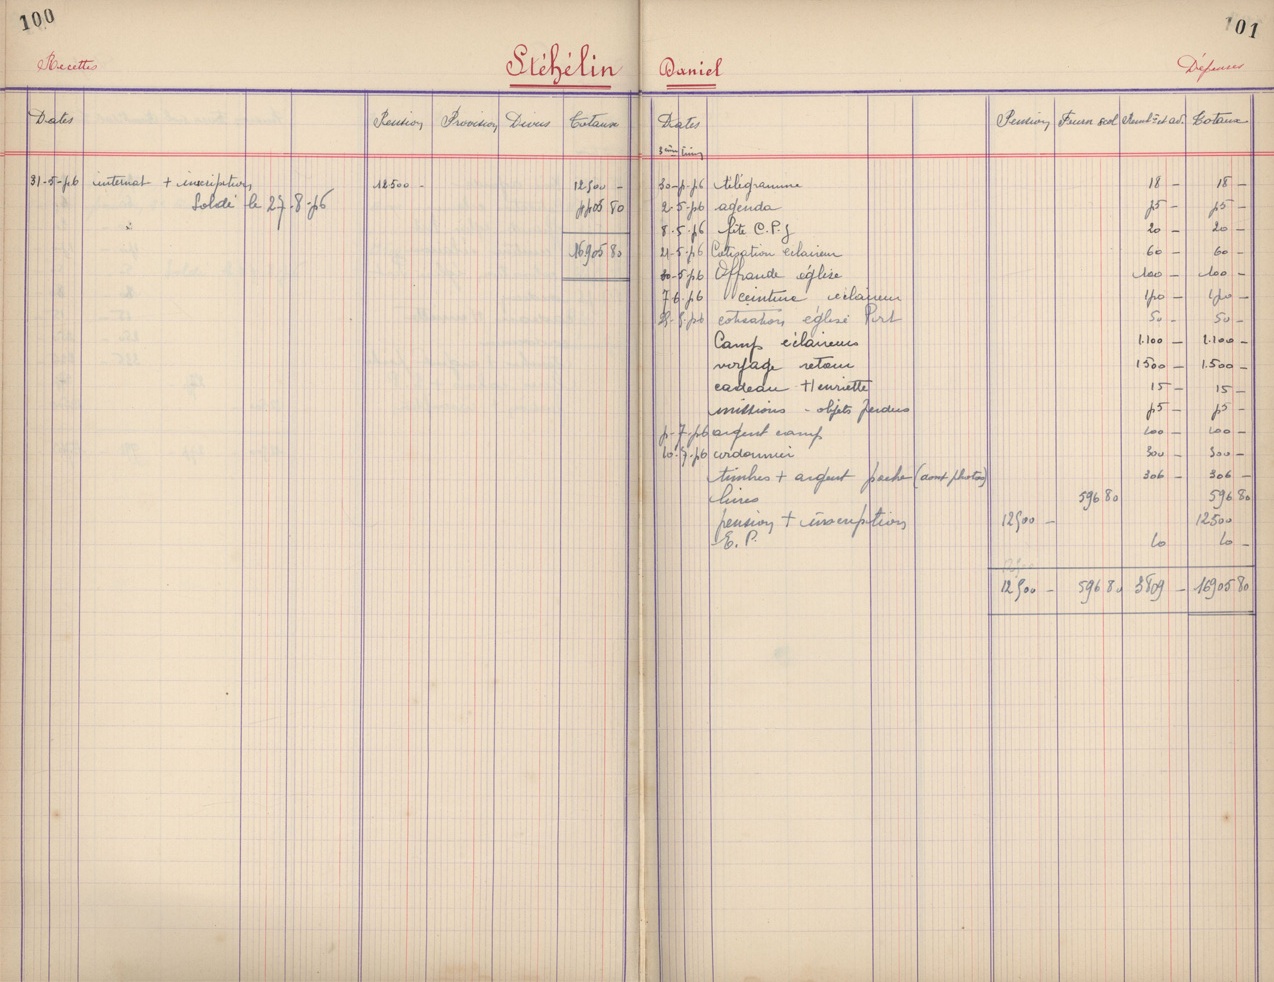 100
Recettes
Stéhélin
Dates Pension Provision Divers Totaux
31-5-46 internat + inscription 12500 - 12500 -
Soldé le 27-8-46 4405 80
16905 80
101
Daniel
Dépenses
Dates Pension Fourn scol Totaux
3ème trim
30-4-46 télégramme 18 - 18 -
2-5-46 agenda 45 - 45 -
8-5-46 fête C.P.J 20 - 20 -
21-5-46 Cotisation éclaireur 60 - 60 -
30-5-46 Offrande église 100 - 100 -
7-6-46 ceinture éclaireur 140 - 140 -
cotisation église 50 - 50 -
Camp éclaireurs 1.100 - 1.100 -
voyage retour 1500 - 1.500 -
cadeau Henriette 15 - 15 -
missions - objets perdus 45 - 45 -
4-7-46 argent camp 100 - 100 -
10-7-46 cordonnier 300 - 300 -
timbres + argent poche (dont photos) 306 - 306 -
livres 596 80 596 80
pension + inscription 12500 - 12500
E.P. 10 10 -
12500 - 596 80 3809 - 16905 80